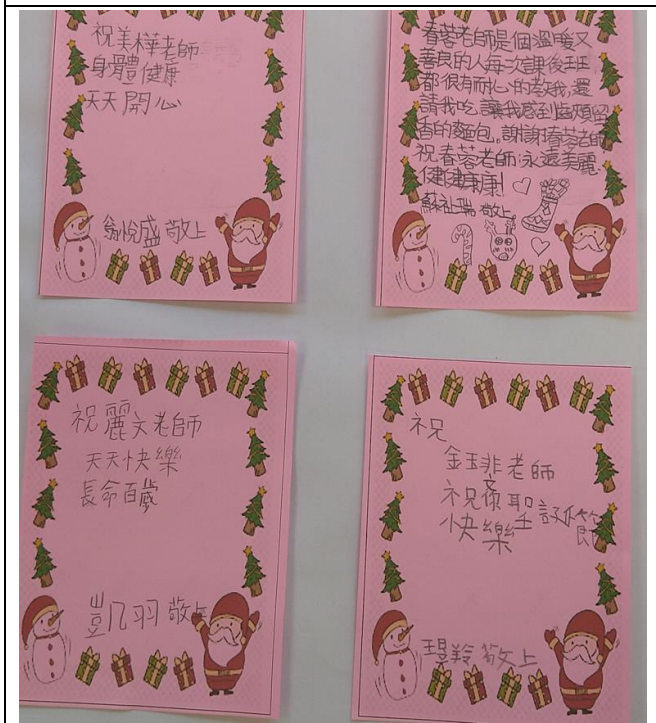 祝美樺老師
身體健康
天天開心
翁悅盛 敬上
春蓉老師是個溫暖又
善良的人每次課後班
都很有耐心的教我,還
請我吃讓我感到齒頰留
香的麵包。謝謝春蓉老師,
祝春蓉老師永遠美麗.
健健康康!
蘇祉瑞 敬上
祝麗文老師
天天快樂
長命百歲
凱羽 敬上
祝
金玉非老師
祝您聖誕節
快樂
敬上